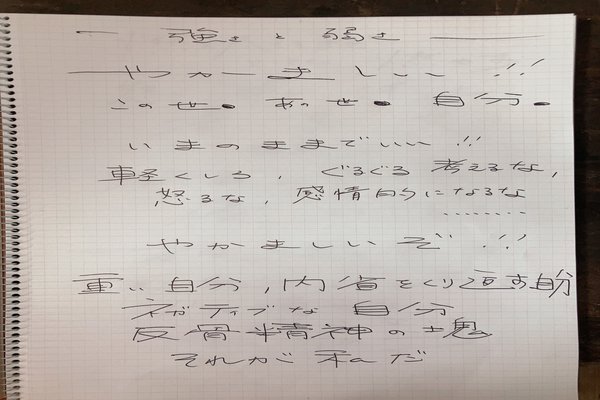 一 強さと弱さ ―
やかましいい!!!
この世。あの世。自分。
いまのままでいい!!!
軽くしろ、ぐるぐる考えるな、
怒るな、感情的になるな
........
やかましいぞ!!!
重い自分、内省をくり返す自分
ネガティブな自分
反骨精神の塊
それが私だ